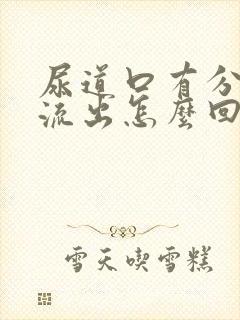 尿道口有分
流出怎麼回
雪天喫雪糕